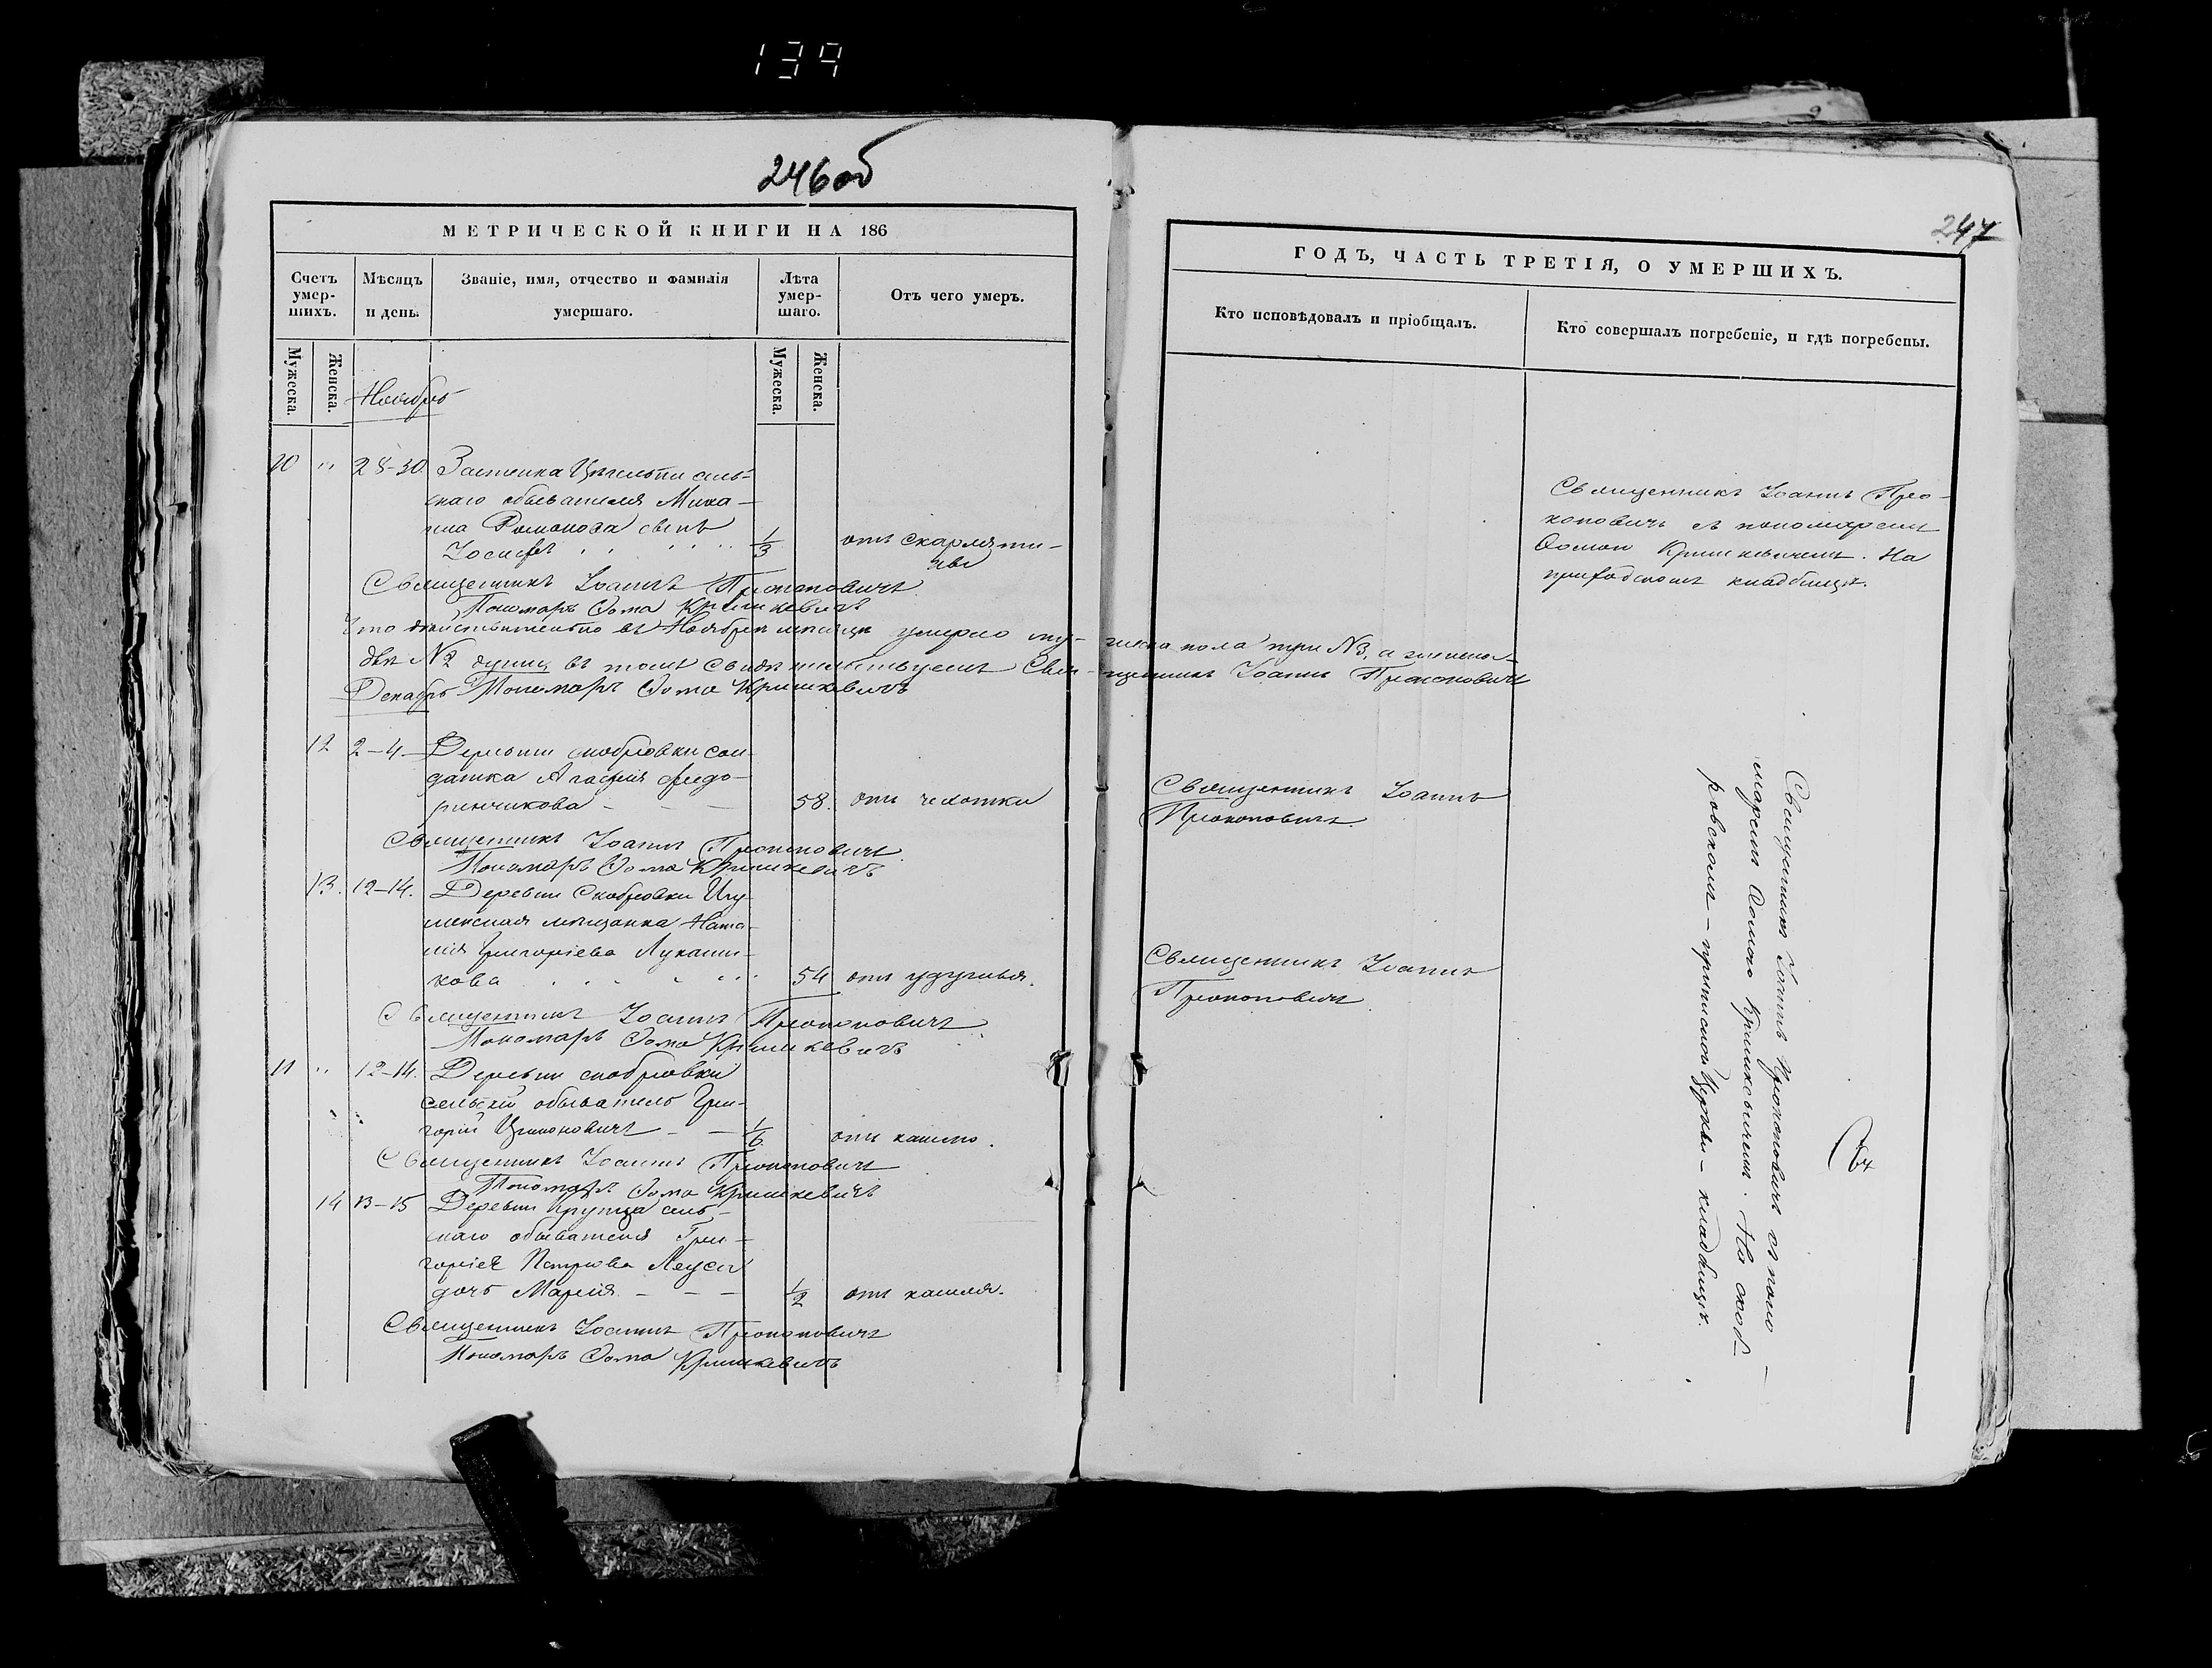 139
246об
МЕТРИЧЕСКОЙ КНИГИ НА 186
Счетъ умер-шихъ.
Мѣсяцъ и день.
Званіе, имя, отчество и фамилія умершаго.
Лѣта умер-шаго.
Отъ чего умеръ.
Мужеска.
Женска.
Мужеска.
Женска.
Ноябрь
10 " 28-30. Застенка сель-
скаго обывателя Миха-
ила Романова сынъ
Іосифъ 1/3 отъ скарляти-
ны
Священникъ Іоаннъ Прокоповичъ
Пономарь Ѳома Кришкевичъ
Что дѣйствительно въ Ноябрѣ мѣсяцѣ умерло му- жеска пола три №3, а женска
двѣ №2 души, въ томъ свидѣтельствуемъ Свя- щенникъ Іоаннъ Прокоповичъ
Декабрь Пономарь Ѳома Кришкевичъ
12 2-4 Деревни Скобровки сол-
датка Агафія Ѳедо-
ринчикова 58. отъ чехотки
Священникъ Іоаннъ Прокоповичъ
Пономарь Ѳома Кришкевичъ
13. 12-14. Деревни Скобровки Игу-
менская мѣщанка Ната-
лія Григоріева Лукаши-
кова 54 отъ удушья.
Священникъ Іоаннъ Прокоповичъ
Пономарь Ѳома Кришкевичъ
11 " 12-14. Деревни Скобровки
сельскій обыватель Гри-
горій 1/6 отъ кашлю.
Священникъ Іоаннъ Прокоповичъ
Пономарь Ѳома Кришкевичъ
14 13-15 Деревни сель-
скаго обывателя Гри-
горіея Петрова
дочь Марія 1/2 отъ кашля.
Священникъ Іоаннъ Прокоповичъ
Пономарь Ѳома Кришкевичъ
247
ГОДЪ, ЧАСТЬ ТРЕТІЯ, О УМЕРШИХЪ.
Кто исповѣдовалъ и пріобщалъ.
Кто совершалъ погребеніе, и гдѣ погребены.
Священникъ Іоаннъ Про-
коповичъ съ пономаремъ
Ѳомою Кришкевичемъ. На
приходскомъ кладбищѣ.
Священникъ Іоаннъ
Прокоповичъ.
Священникъ Іоаннъ
Прокоповичъ
Священникъ Іоаннъ Прокоповичъ съ поно-
маремъ Ѳомою Кришкевичемъ. На скоб-
ровскомъ - приписной Церкви - кладбищѣ.